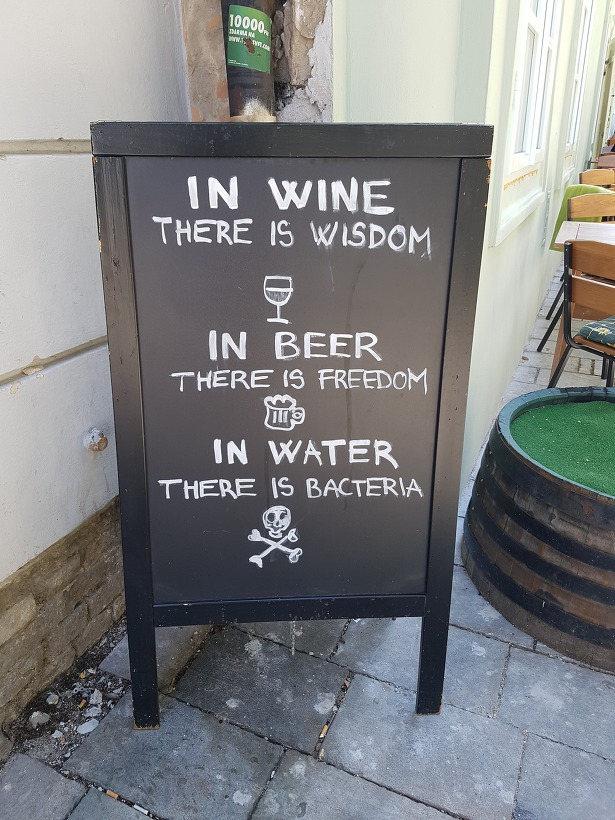 10000
IN WINE
THERE IS WISDOM
IN BEER
THERE IS FREEDOM
IN WATER
THERE IS BACTERIA